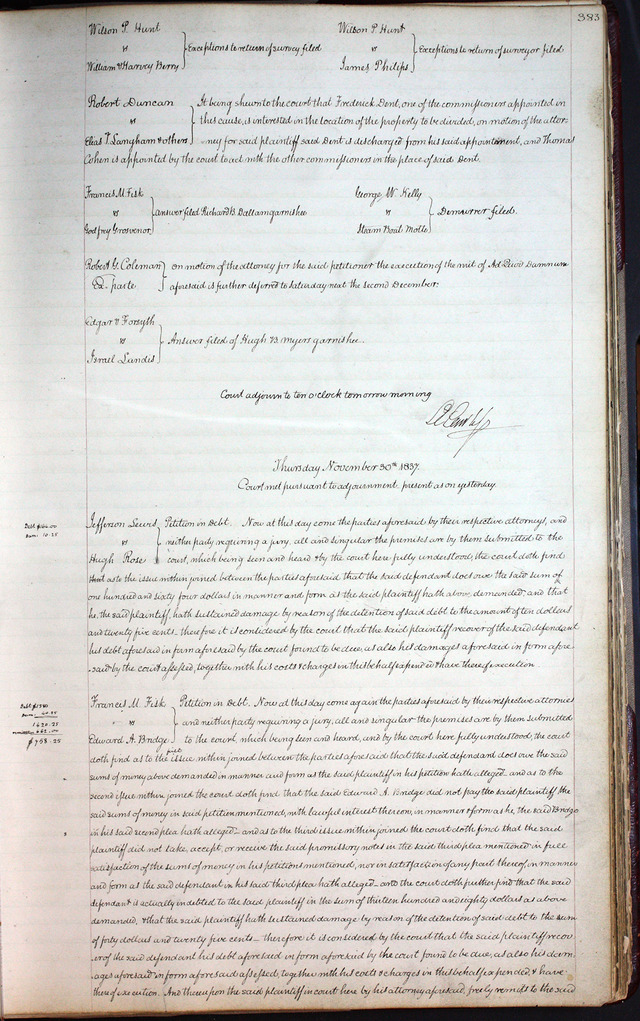 383
Wilson P. Hunt
vs
William & Harvey Berry
Exceptions to return of survey filed
Wilson P. Hunt
vs
James Philips
Exceptions to return of surveyor filed
Robert Duncan
vs
Elias T. Langham & others
It being shewn to the court that Frederick Dent, one of the commissioners appointed in
this cause, is interested in the location of the property to be divided, on motion of the attor-
ney for said plaintiff said Dent is discharged from his said appointment, and Thomas
Cohen is appointed by the court to act with the other commissioners in the place of said Dent.
Francis M. Fisk
vs
Godfrey Grosvenor
Answer filed Richard B. Dallam garnishee
George W. Kelly
vs
Steam Boat Mollo
Demurrer filed.
Robert G. Coleman
Ex parte
on motion of the attorney for the said petitioner the execution of the writ of Ad Quod Damnum
aforesaid is further deferred to Saturday next the second December.
Edgar & Forsyth
vs
Israel Landes
Answer filed of Hugh B. Myers garnishee.
Court adjourn to ten o'clock tomorrow morning
Thursday November 30th 1837.
Court met pursuant to adjournment, present as on yesterday.
Debt $164.00
Dam: 10.25
Jefferson Lewis
vs
Hugh Rose
Petition in Debt. Now at this day come the parties aforesaid by their respective attorneys, and
neither party requiring a jury, all and singular the premises are by them submitted to the
court, which being seen and heard & by the court here fully understood, the court doth find
as to the issue within joined between the parties aforesaid that the said defendant does owe the said sum of
one hundred and sixty four dollars in manner and form as the said plaintiff hath above demanded; and that
he, the said plaintiff, hath sustained damage by reason of the detention of said debt to the amount of ten dollars
and twenty five cents. therefore it is considered by the court that the said plaintiff recover of the said defendant
his debt aforesaid in form aforesaid by the court found to be due, as also his damages aforesaid in form afore-
said by the court assessed, together with his costs & charges in this behalf expended & have thereof execution.
Debt $1380
Dam 40.25
1420.25
$753.25
Francis M. Fisk
vs
Edward A. Bridge
Petition in Debt. Now at this day come again the parties aforesaid by their respective attornies
and neither party requiring a jury, all and singular the premises are by them submitted
to the court, which being seen and heard, and by the court here fully understood, the court
doth find as to the first issue within joined between the parties aforesaid that the said defendant does owe the said
sums of money above demanded in manner and form as the said plaintiff in his petition hath alleged. and as to the
second issue within joined the court doth find that the said Edward A. Bridge did not pay the said plaintiff the
said sums of money in said petition mentioned, with lawful interest thereon, in manner & form as he, the said Bridge
in his said second plea hath alleged. and as to the third issue within joined the court doth find that the said
plaintiff did not take, accept, or receive the said promissory notes in the said third plea mentioned in full
satisfaction of the sums of money in his petitions mentioned, nor in satisfaction of any part thereof, in manner
and form as the said defendant in his said third plea hath alleged. and the court doth further find that the said
defendant is actually indebted to the said plaintiff in the sum of thirteen hundred and eighty dollars as above
demanded, & that the said plaintiff hath sustained damage by reason of the detention of said debt to the sum
of forty dollars and twenty five cents. therefore it is considered by the court that the said plaintiff recov-
er of the said defendant his debt aforesaid in form aforesaid by the court found to be due, as also his dam-
ages aforesaid in form aforesaid assessed, together with his costs & charges in this behalf expended, & have
thereof execution. And thereupon the said plaintiff in court here by his attorney aforesaid, freely remits to the said